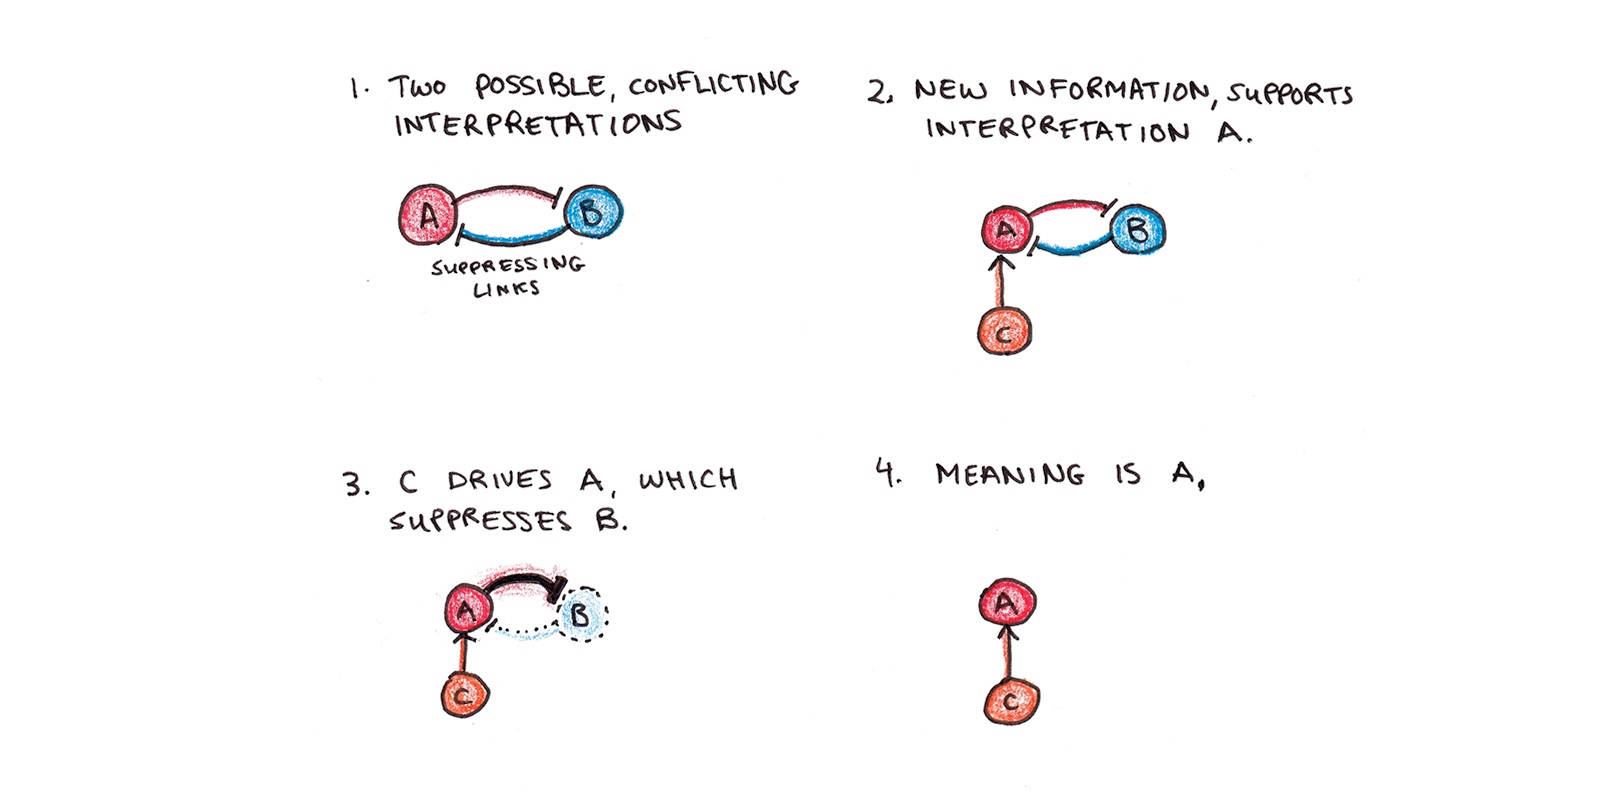 1. TWO POSSIBLE, CONFLICTING
INTERPRETATIONS
A
B
SUPPRESSING
LINKS
2. NEW INFORMATION, SUPPORTS
INTERPRETATION A.
A
B
C
3. C DRIVES A, WHICH
SUPPRESSES B.
A
B
C
4. MEANING IS A.
A
C